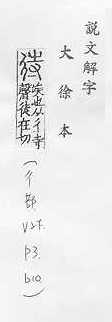 說文解字
大徐本
待
竢也从彳寺
聲徒在切
(彳部 V2下. P3. b10.)